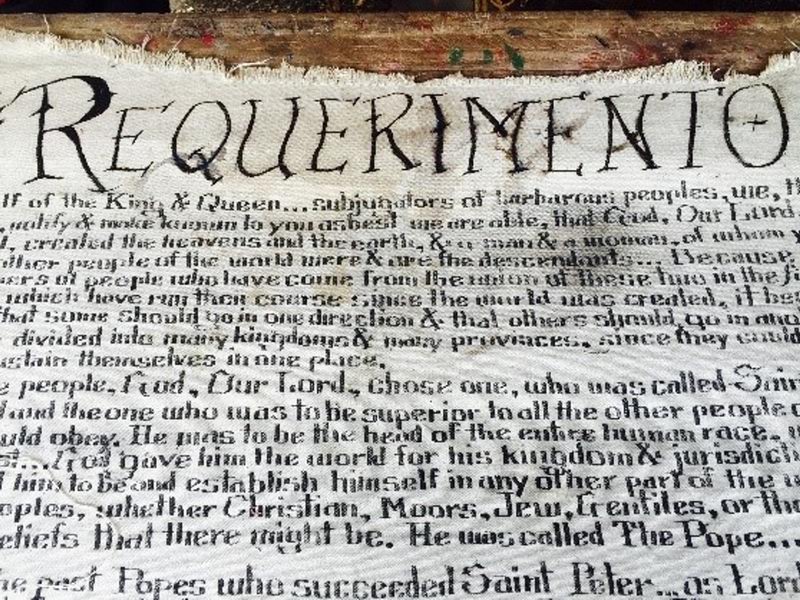 REQUERIMENTO
lf of the King & Queen... subjugators of barbarous peoples, we, th
, notify & make known to you as best we are able, that God, Our Lord
, created the heavens and the earth, & a man & a woman, of whom y
other people of the world were & are the descendants... Because
bers of people who have come from the union of these two in the
which have run their course since the world was created, it
that some should go in one direction & that others should go in ano
divided into many kingdoms & many provinces, since they could
ustain themselves in one place.
e people, God, Our Lord, chose one, who was called Sain
and the one who was to be superior to all the other people o
uld obey. He was to be the head of the entire human race, w
God gave him the world for his kingdom & jurisdicti
d him to be and establish himself in any other part of the w
oples, whether Christian, Moors, Jew, Gentiles, or the
eliefs that there might be. He was called The Pope...
he past Popes who succeeded Saint Peter... as Lord